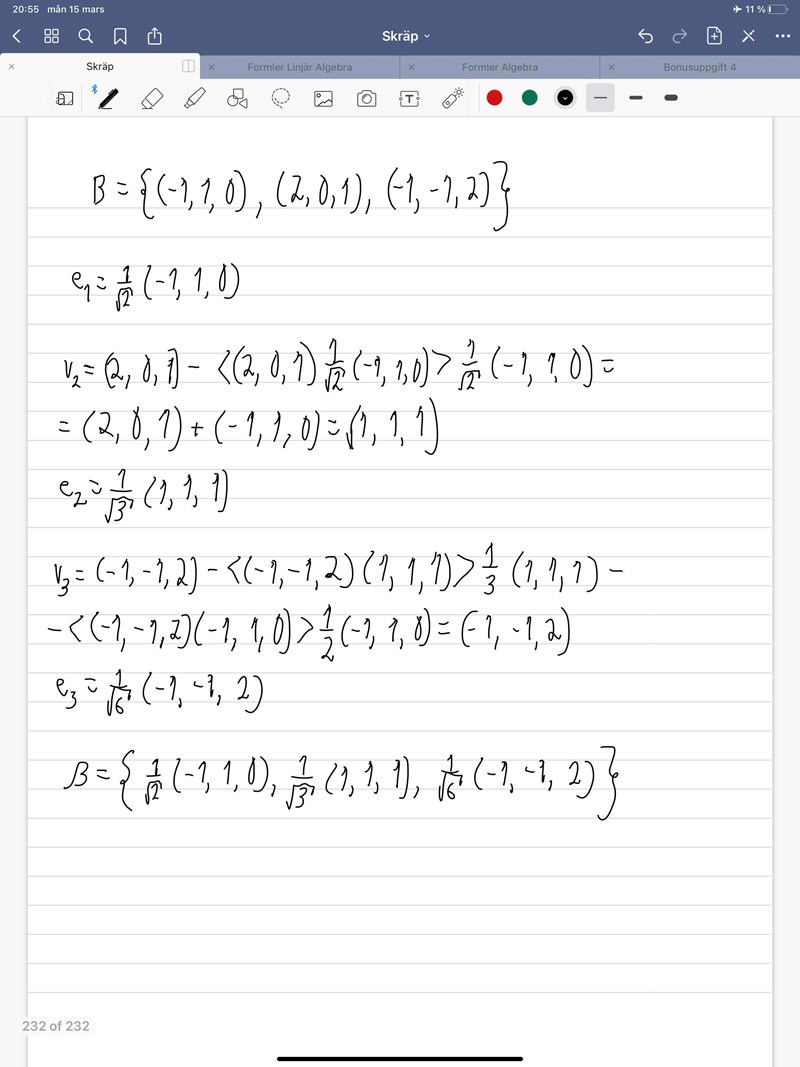 20:55 mån 15 mars 11 %
Skräp
Skräp Formler Linjär Algebra Formler Algebra Bonusuppgift 4
B = {(-1, 1, 0), (2, 0, 1), (-1, -1, 2)}
e₁ = 1/√2 (-1, 1, 0)
v₂ = (2, 0, 1) - <(2, 0, 1) 1/√2 (-1, 1, 0)> 1/√2 (-1, 1, 0) =
= (2, 0, 1) + (-1, 1, 0) = (1, 1, 1)
e₂ = 1/√3 (1, 1, 1)
v₃ = (-1, -1, 2) - <(-1, -1, 2) (1, 1, 1)> 1/3 (1, 1, 1) -
- <(-1, -1, 2)(-1, 1, 0)> 1/2 (-1, 1, 0) = (-1, -1, 2)
e₃ = 1/√6 (-1, -1, 2)
B = {1/√2 (-1, 1, 0), 1/√3 (1, 1, 1), 1/√6 (-1, -1, 2)}
232 of 232